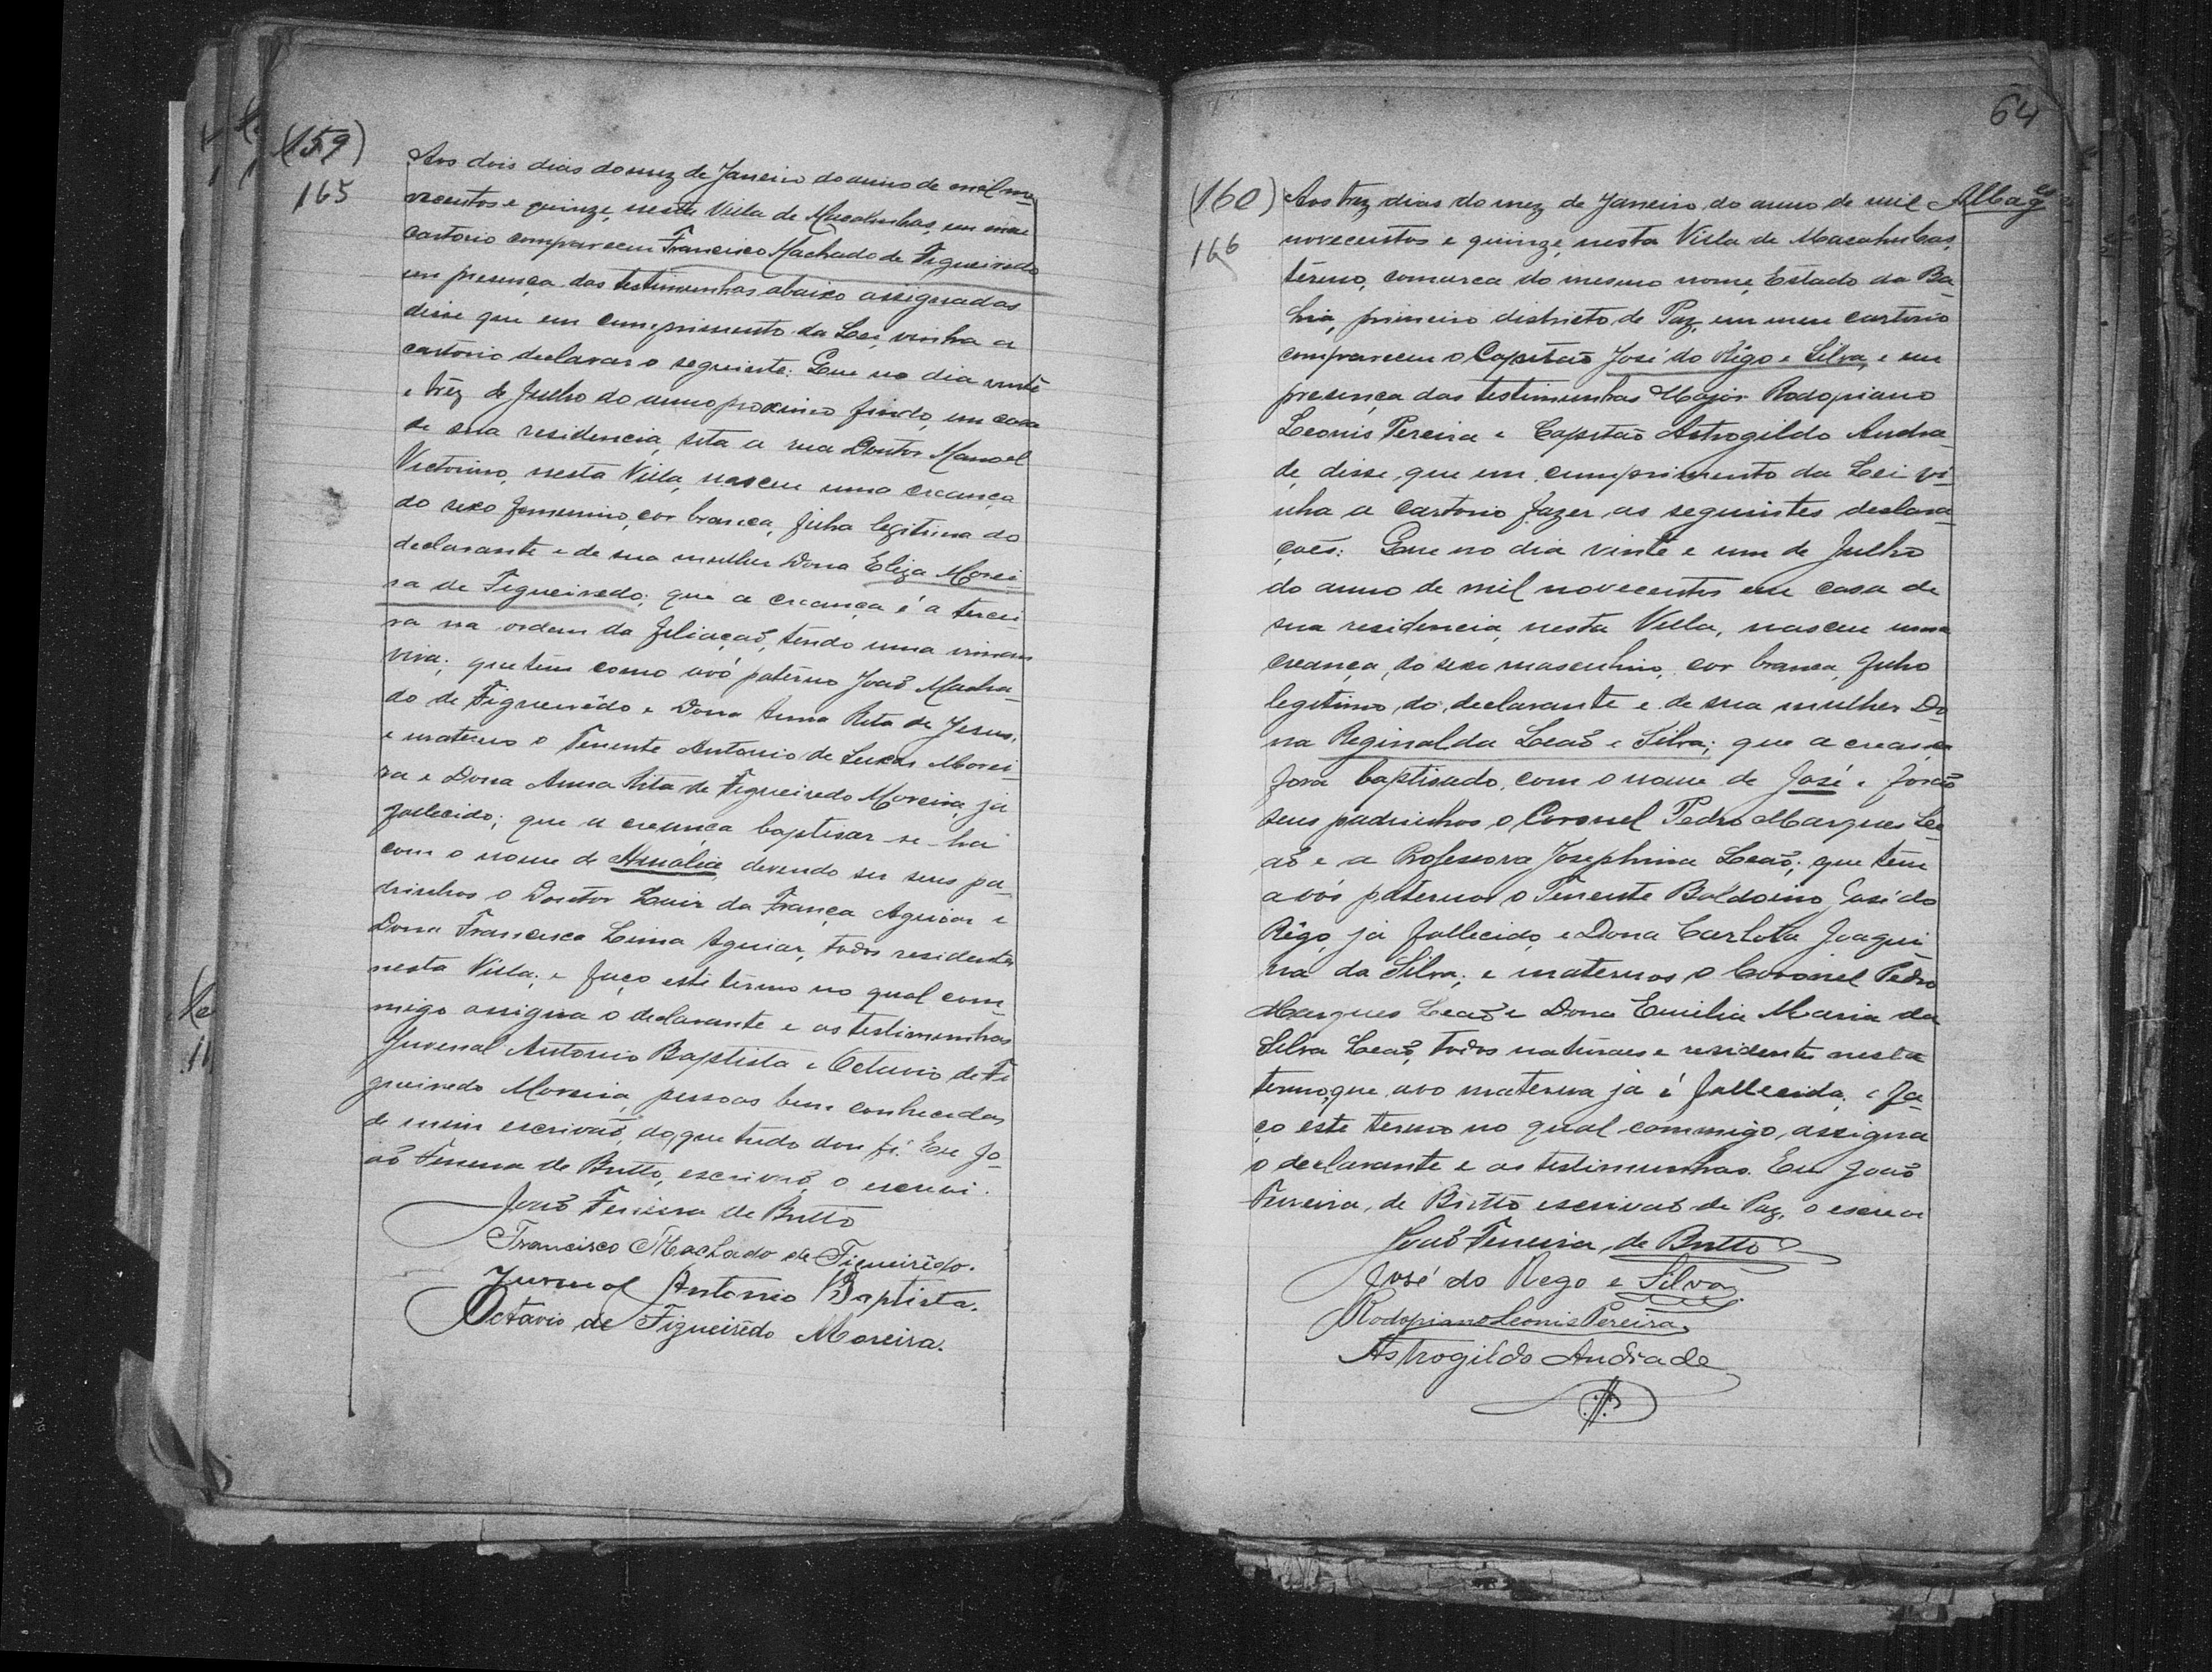 (159)
165
Aos dois dias do mez de Janeiro do anno de mil no-
vecentos e quinze, nesta Villa de Macahubas, em meu
cartorio compareceu Francisco Machado de Figueiredo
em presença das testimunhas abaixo assignadas
disse que em cumprimento da Lei, vinha a
cartorio declarar o seguinte: Que no dia vinte
e trez de Julho do anno proximo findo, em casa
de sua residencia, sita a rua Doutor Manoel
Victorino, nesta Villa, nasceu uma creança
do sexo femenino, cor branca, filha legitima do
declarante e de sua mulher Dona Eliza Morei-
ra de Figueiredo; que a creança é a tercei-
ra na ordem da filiação, tendo uma irman
viva; que tem como avó paterno João Macha-
do de Figueirêdo e Dona Anna Rita de Jesus,
e materno o Tenente Antonio de Morei-
ra e Dona Anna Rita de Figueiredo Moreira, já
fallecido; que a creança baptisar-se-ha
com o nome de Amalia, devendo ser seus pa-
drinhos o Doutor Luiz da França Aguiar e
Dona Francisca Lima Aguiar, todos residentes
nesta Villa; e faço este termo no qual com-
migo assigna o declarante e as testimunhas
Juvenal Antonio Baptista e Octavio de Fi-
gueiredo Moreira, pessoas bem conhecidas
de mim escrivaõ, do que tudo dou fé. Eu Jo-
aõ Ferreira de Britto, escrivaõ, o escrevi.
Joaõ Ferreira de Britto
Francisco Machado de Figueirêdo.
Juvenal Antonio Baptista.
Octavio de Figueirêdo Moreira.
64
(160)
166
Aos trez dias do mez de Janeiro do anno de mil
novecentos e quinze, nesta Villa de Macahubas,
têrmo, comarca do mesmo nome, Estado da Ba-
hia, primeiro districto de Paz, em meu cartorio
compareceu o Capitaõ José do Rêgo e Silva, e em
presença das testimunhas Major Rodopiano
Leonis Pereira e Capitaõ Astrogildo Andra-
de, disse que em cumprimento da Lei vi-
nha a cartorio fazer as seguintes declara-
çoẽs: Que no dia vinte e um de Julho
do anno de mil novecentos em casa de
sua residencia, nesta Villa, nasceu uma
creança, do sexo masculino, cor branca, filho
legitimo do declarante e de sua mulher Do-
na Reginalda Leaõ e Silva; que a creança
fora baptisado, com o nome de José e foraõ
seus padrinhos o Coronel Pedro Marques Le-
aõ e a Professora Josephina Leaõ; que tem
avós paternos o Tenente Baldoino José do
Rêgo, já fallecido, e Dona Carlota Joaqui-
na da Silva; e maternos o Coronel Pedro
Marques Leaõ e Dona Emilia Maria da
Silva Leaõ, todos naturaes e residentes neste
termo, que avo materna já é fallecida; e fa-
ço este termo no qual commigo, assigna
o declarante e as testimunhas. Eu Joaõ
Ferreira, de Britto escrivaõ de Paz, o escrevi
Joaõ Ferreira de Britto
José do Rego e Silva
Rodopiano Leonis Pereira.
Astrogildo Andrade